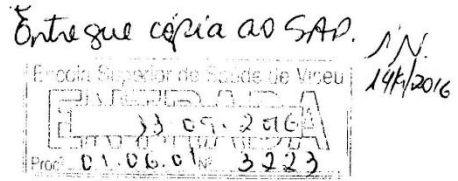 Entregue cópia ao SAP.
Escola Superior de Saúde de Viseu
ENTRADA
09. 2016
Procº 01.06.01 Nº 3223